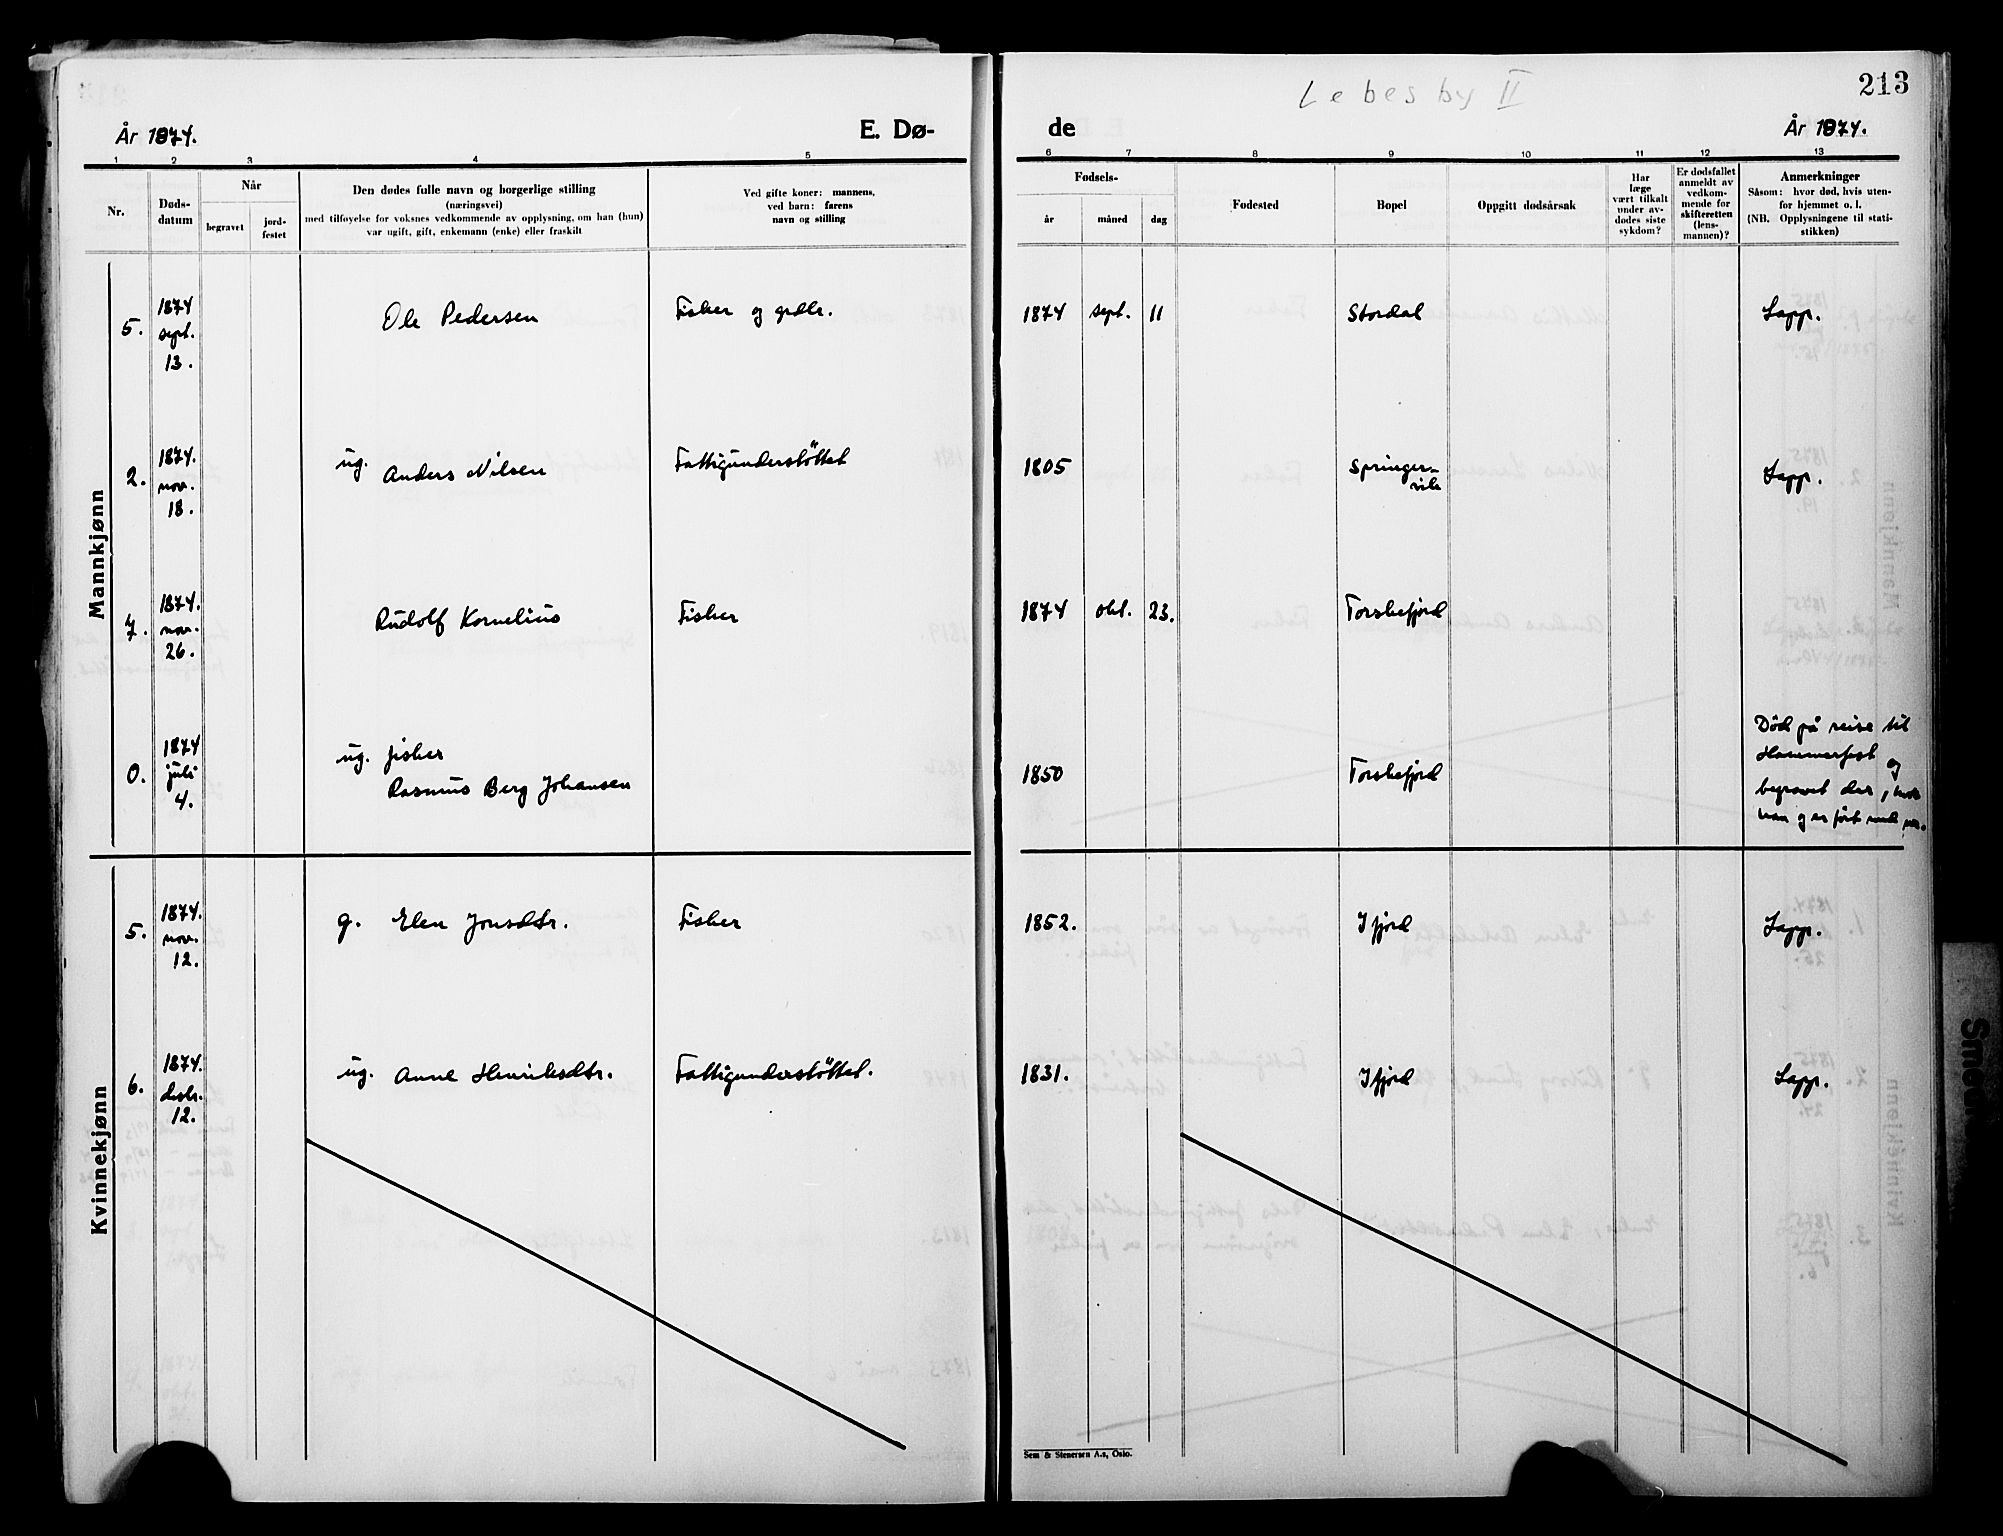 Lebesby II
213
År 1874.
E. Dø-
de
År 1874.
1 2 3 4 5
6 7 8 9 10 11 12 13
Nr.
Døds-
datum
Når
begravet
jord-
festet
Den dødes fulle navn og borgerlige stilling
(næringsvei)
med tilføyelse for voksnes vedkommende av opplysning, om han (hun)
var ugift, gift, enkemann (enke) eller fraskilt
Ved gifte koner: mannens,
ved barn: farens
navn og stilling
Fødsels-
år måned dag
Fødested
Bopel
Oppgitt dødsårsak
Har
læge
vært tilkalt
under av-
dødes siste
sykdom?
Er dødsfallet
anmeldt av
vedkom-
mende for
skifteretten
(lens-
mannen)?
Anmerkninger
Såsom: hvor død, hvis uten-
for hjemmet o. l.
(NB. Opplysningene til stati-
stikken)
Mannkjønn
5.
1874
sept.
13.
Ole Pedersen
Fisker og grdbr.
1874 sept. 11
Stordal
Lapp.
2.
1874.
nov.
18.
ug. Anders Nilsen
Fattigunderstöttet
1805
Springer-
vik
Lapp.
7.
1874.
nov.
26.
Rudolf Kornelius
Fisker
1874 okt. 23.
Torskefjord
0.
1874
juli
4.
ug. fisker
Rasmus Berg Johansen
1850
Torskefjord
Död på reise til
Hammerfest og
begravet der, hvor
han og er fört med nr.
Kvinnekjønn
5.
1874.
nov.
12.
g. Elen Jonsdtr.
Fisker
1852.
Ifjord
Lapp.
6.
1874.
desbr.
12.
ug. Anne Henriksdtr.
Fattigunderstöttet.
1831.
Ifjord
Lapp.
Sem & Stenersen A.s, Oslo.